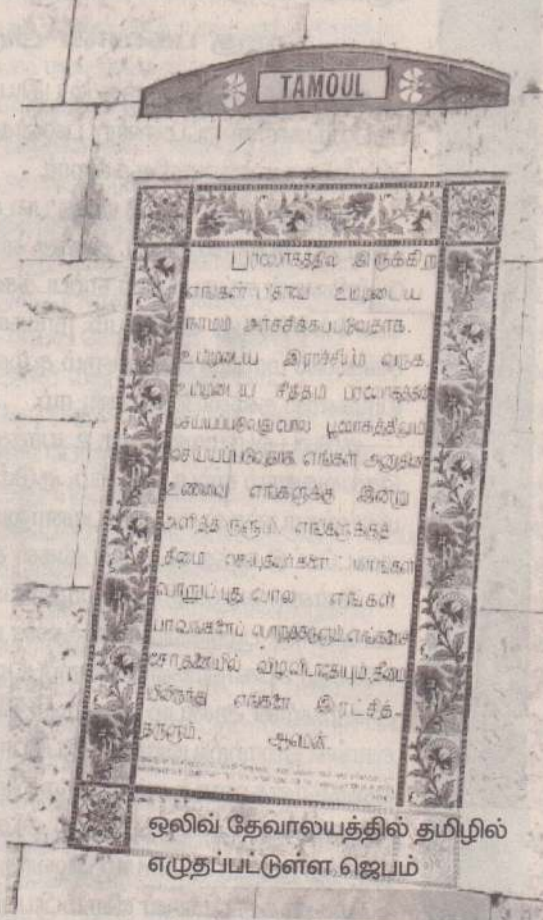 TAMOUL
பரலோகத்தில் இருக்கிற
எங்கள் பிதாவே உம்முடைய
நாமம் அர்ச்சிக்கப்படுவதாக.
உம்முடைய இராச்சியம் வருக.
உம்முடைய சித்தம் பரலோகத்தில்
செய்யப்படுவதுபோல பூலோகத்திலும்
செய்யப்படுவதாக. எங்கள் அனுதின
உணவை எங்களுக்கு இன்று
அளித்தருளும். எங்களுக்குத்
தீமை செய்தவர்களை நாங்கள்
பொறுப்பது போல எங்கள்
பாவங்களைப் பொறுத்தருளும். எங்களைச்
சோதனையில் விழவிடாதேயும். தீமை
யிலிருந்து எங்களை இரட்சித்-
தருளும். ஆமென்.
ஒலிவ் தேவாலயத்தில் தமிழில்
எழுதப்பட்டுள்ள ஜெபம்